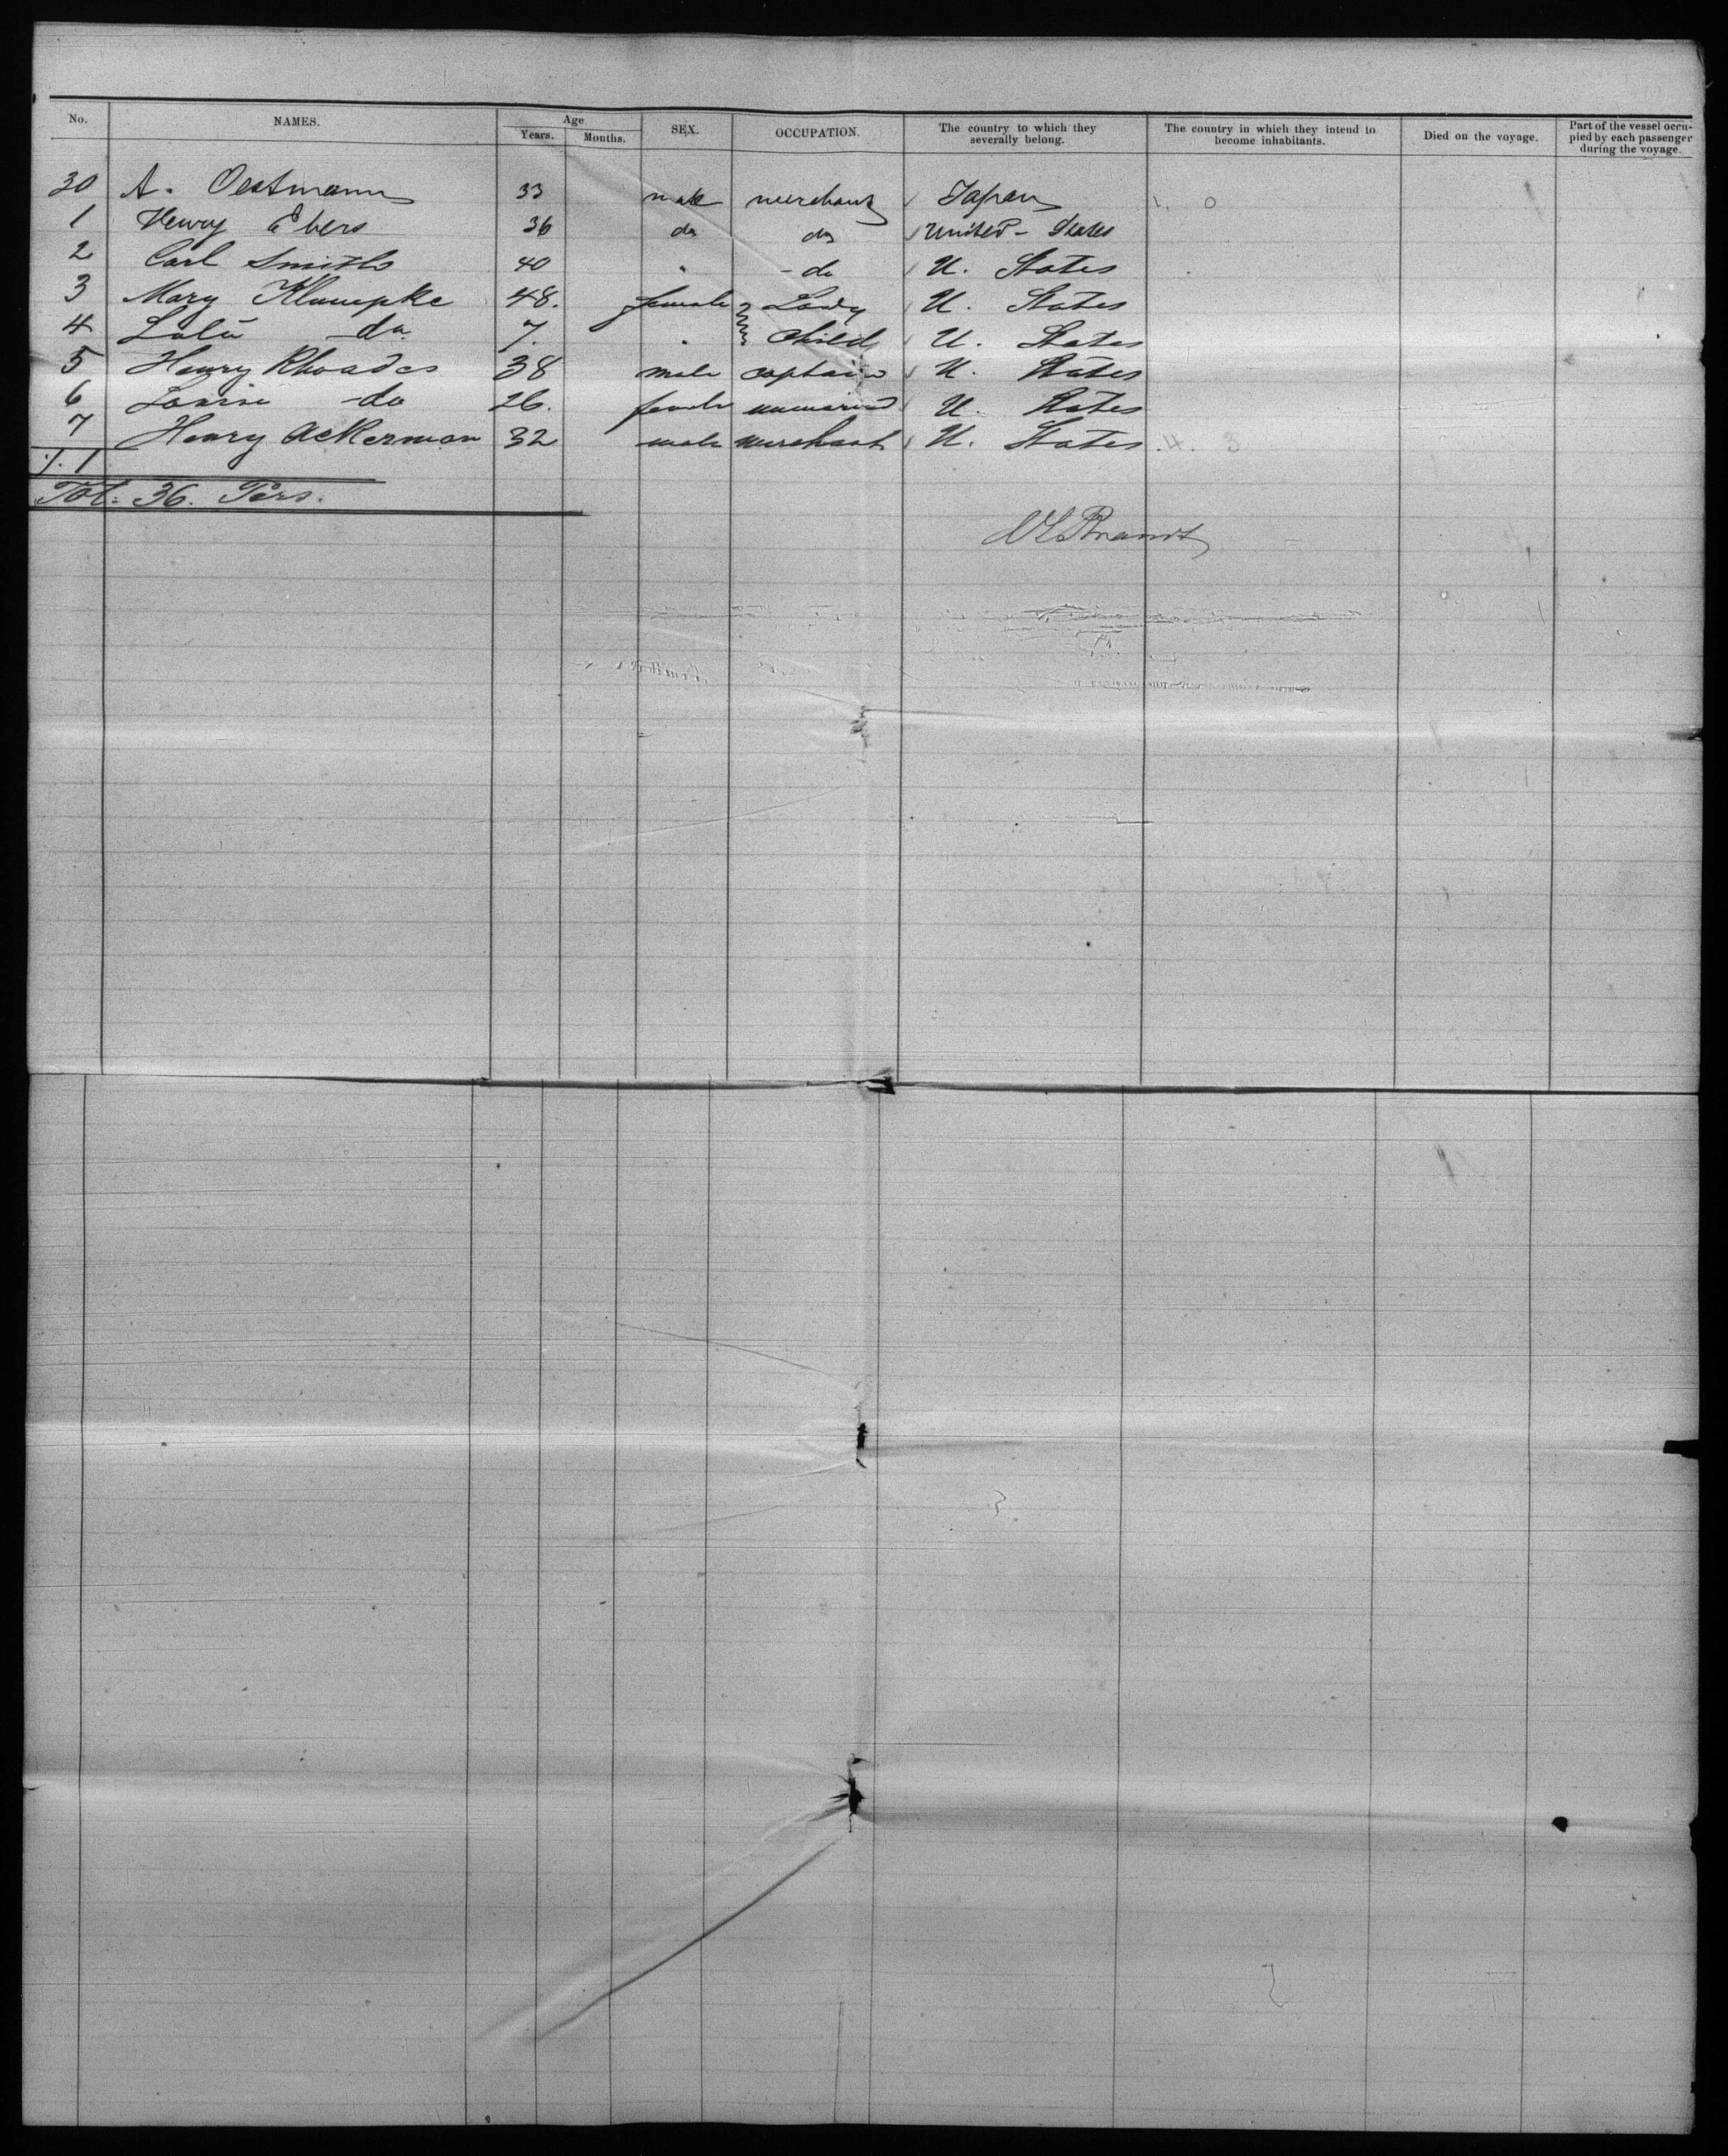 No. NAMES. Age Years. Months. SEX. OCCUPATION. The country to which they severally belong. The country in which they intend to become inhabitants. Died on the voyage. Part of the vessel occupied by each passenger during the voyage.
30 A. Oestmann 33 male merchant Japan
1 Henry Ebers 36 do do United-States
2 Carl Smith 40 " -do U. States
3 Mary Klumpke 48. female Lady U. States
4 Lulu do. 7. " Child U. States
5 Henry Rhoades 38 male captain U. States
6 Louise do 26. female unmarried U. States
7 Henry Ackerman 32 male merchant U. States. 4. 3
%. 1
Tot: 36. Pers.
Brandt